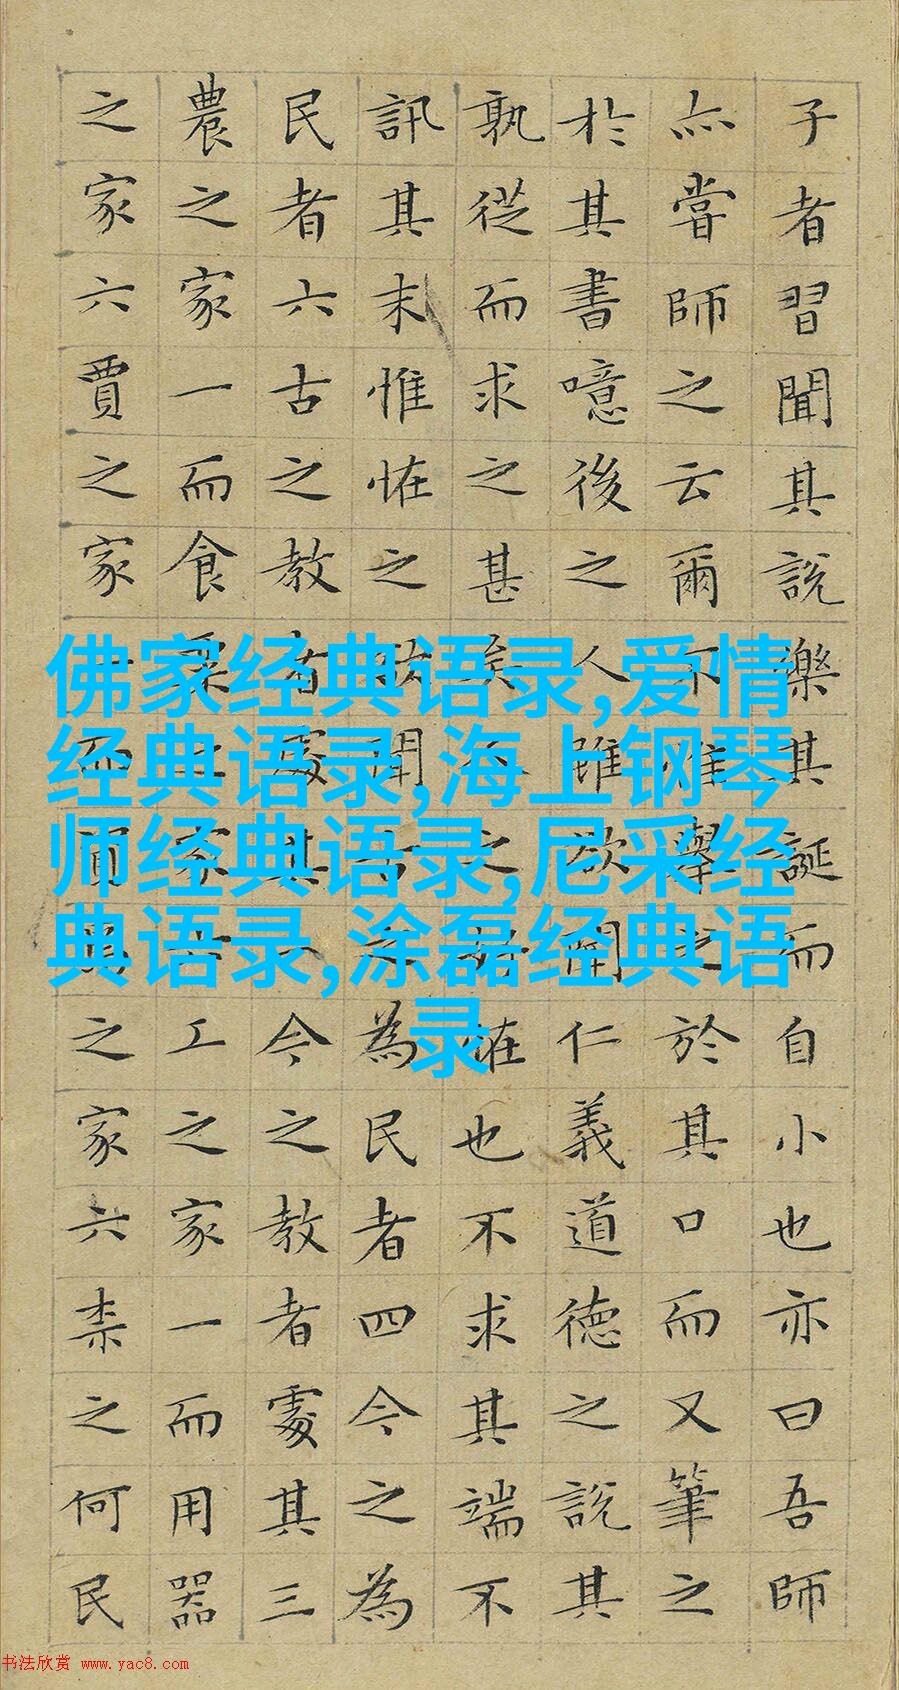 子者習聞其說樂其誕而自小也亦曰吾師
亦嘗師之云爾不惟舉之於其口而又筆之
於其書噫後之人雖欲聞仁義道德之說其
孰從而求之甚矣人之好恠也不求其端不
訊其末惟恠之欲聞古之為民者四今之為
民者六古之教者處其一今之教者處其三
農之家一而食粟之家六工之家一而用器
之家六賈之家一而資焉之家六柰之何民
佛家经典语录,爱情
经典语录,海上钢琴
师经典语录,尼采经
典语录,涂磊经典语
录
书法欣赏 www.yac8.com